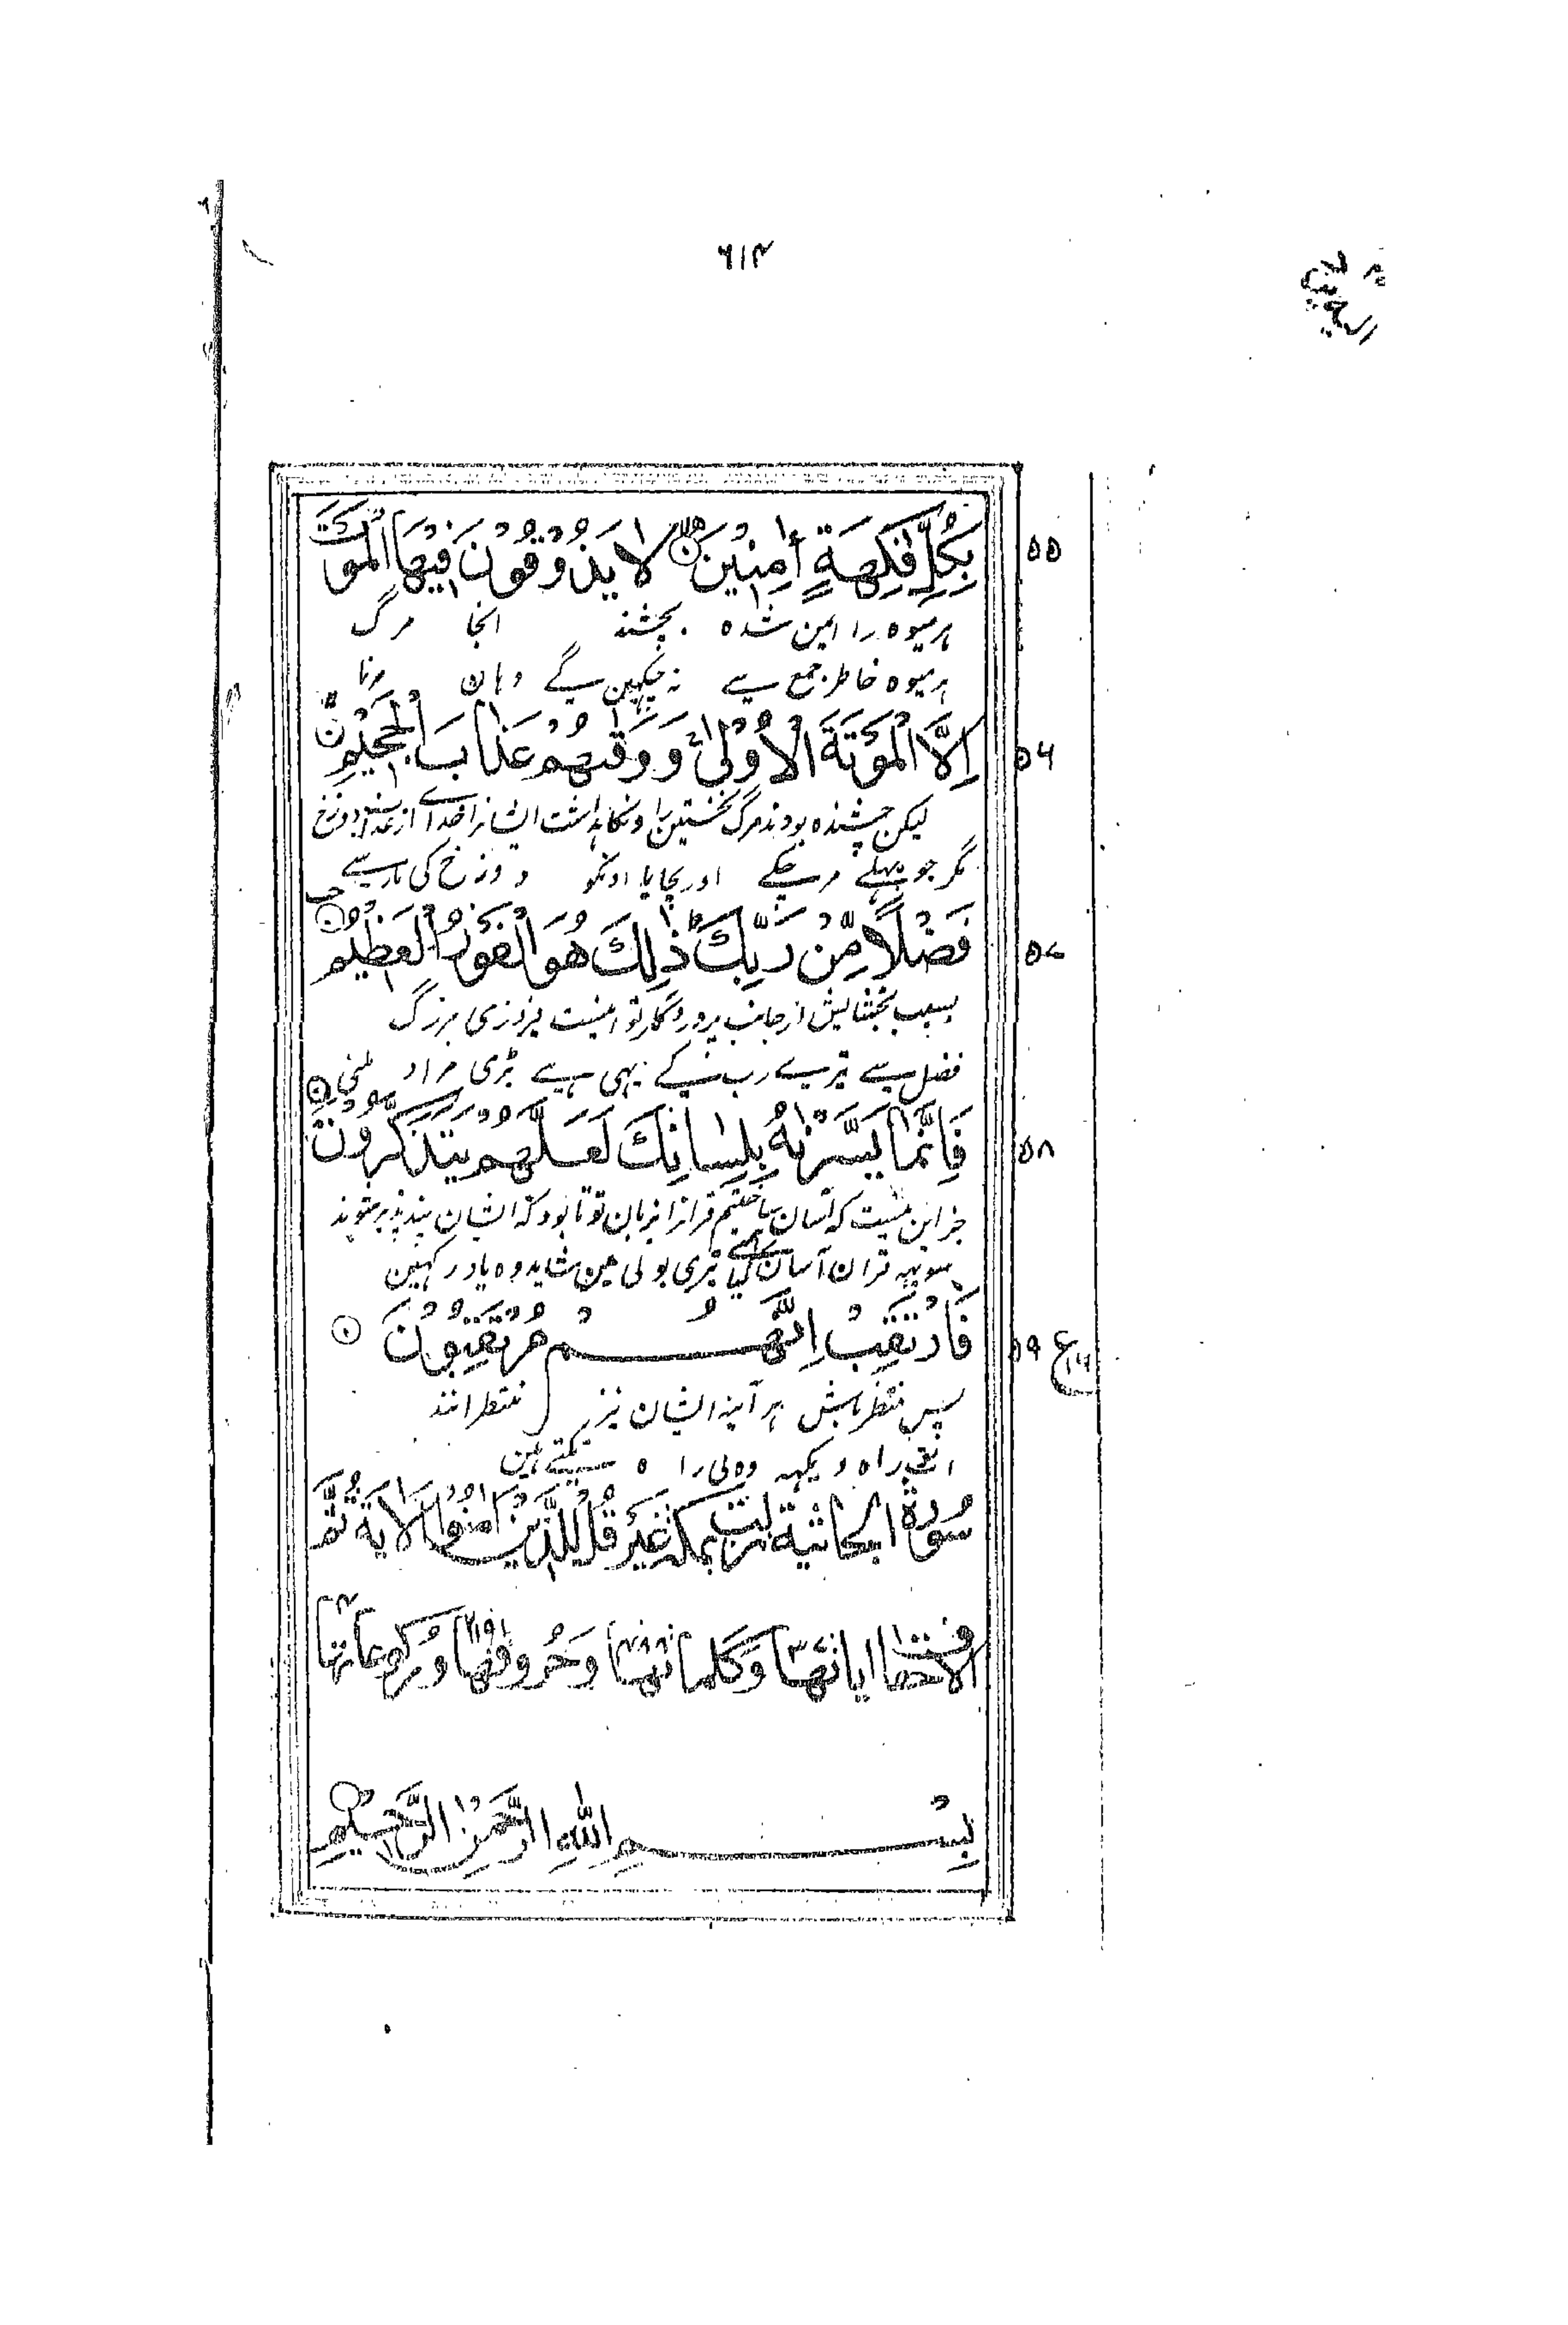 ۶۱۴
الیه یرد ۲۵
بِكُلِّ فَاكِهَةٍ اٰمِنِيْنَ لَا يَذُوْقُوْنَ فِيْهَا الْمَوْتَ ۵۵
ہر میوہ را ایمن شدہ بچشند انجا مرگ
ہر میوہ خاطر جمع سے نہ چکہین گے وہان مرنا
اِلَّا الْمَوْتَةَ الْاُوْلٰى وَوَقٰىهُمْ عَذَابَ الْجَحِيْمِ ۵۶
لیکن چشندہ بودند مرگ نخستین را ونگاہداشت ایشانرا خدای از عذاب دوزخ
مگر جو پہلے مرچکے اور بچایا اونکو دوزخ کی مار سے
فَضْلًا مِّنْ رَبِّكَ ذٰلِكَ هُوَ الْفَوْزُ الْعَظِيْمُ ۵۷
بسبب بخشایش از جانب پروردگار تو اینست فیروزی بزرگ
فضل سے تیرے رب کے یہی ہے بڑی مراد ملنی
فَاِنَّمَا يَسَّرْنٰهُ بِلِسَانِكَ لَعَلَّهُمْ يَتَذَكَّرُوْنَ ۵۸
جز این نیست کہ آسان ساختیم قرانرا بزبان تو تا بود کہ ایشان پند پذیر شوند
سو یہہ قران آسان کیا ہمنے تیری بولی مین شاید وہ یاد رکہین
فَارْتَقِبْ اِنَّهُمْ مُرْتَقِبُوْنَ ۵۹ ع ۱۶
پس منتظر باش ہر آینہ ایشان نیز منتظرانند
اب راہ دیکہہ وہ بی راہ تکتے ہین
سُوْرَةُ الجاثية نزلت بمكة غَيْرَ قُلْ لِلَّذِيْنَ اٰمَنُوْا الْاٰيَةَ ثُمَّ
الاختاف اياتها ۳۷ وَكَلِمَاتُهَا ۴۸۸ وَحُرُوْفُهَا ۲۱۹۱ وَركوعاتها ۴
بِسْمِ اللّٰهِ الرَّحْمٰنِ الرَّحِيْمِ